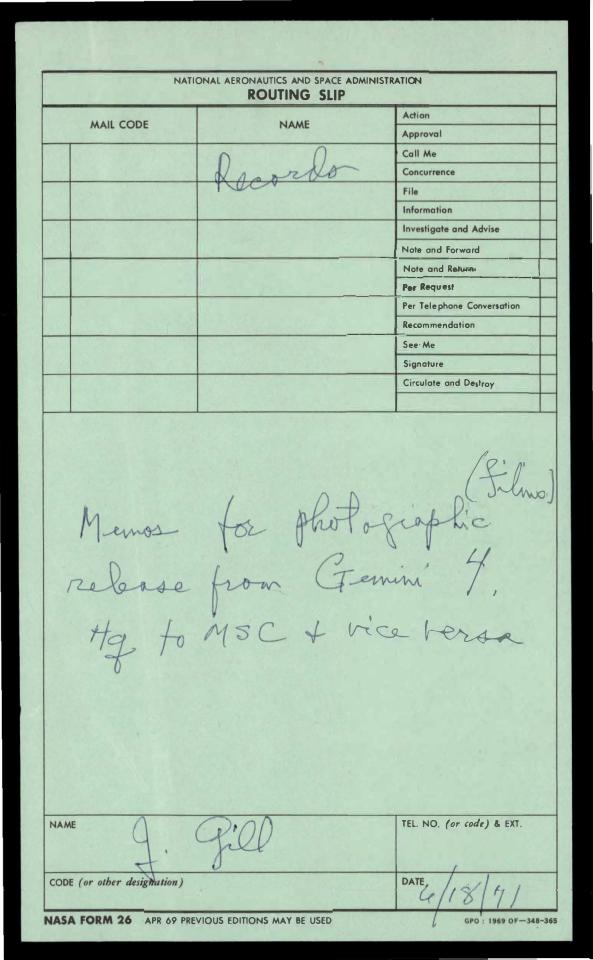 NATIONAL AERONAUTICS AND SPACE ADMINISTRATION
ROUTING SLIP
MAIL CODE
NAME
Action
Approval
Call Me
Concurrence
File
Information
Investigate and Advise
Note and Forward
Note and Return
Per Request
Per Telephone Conversation
Recommendation
See Me
Signature
Circulate and Destroy
Records
(Films)
Memos for photographic
release from Gemini 4,
Hq to MSC & vice versa
NAME
J. Gill
TEL. NO. (or code) & EXT.
CODE (or other designation)
DATE
6/18/71
NASA FORM 26 APR 69 PREVIOUS EDITIONS MAY BE USED
GPO : 1969 OF—348-365